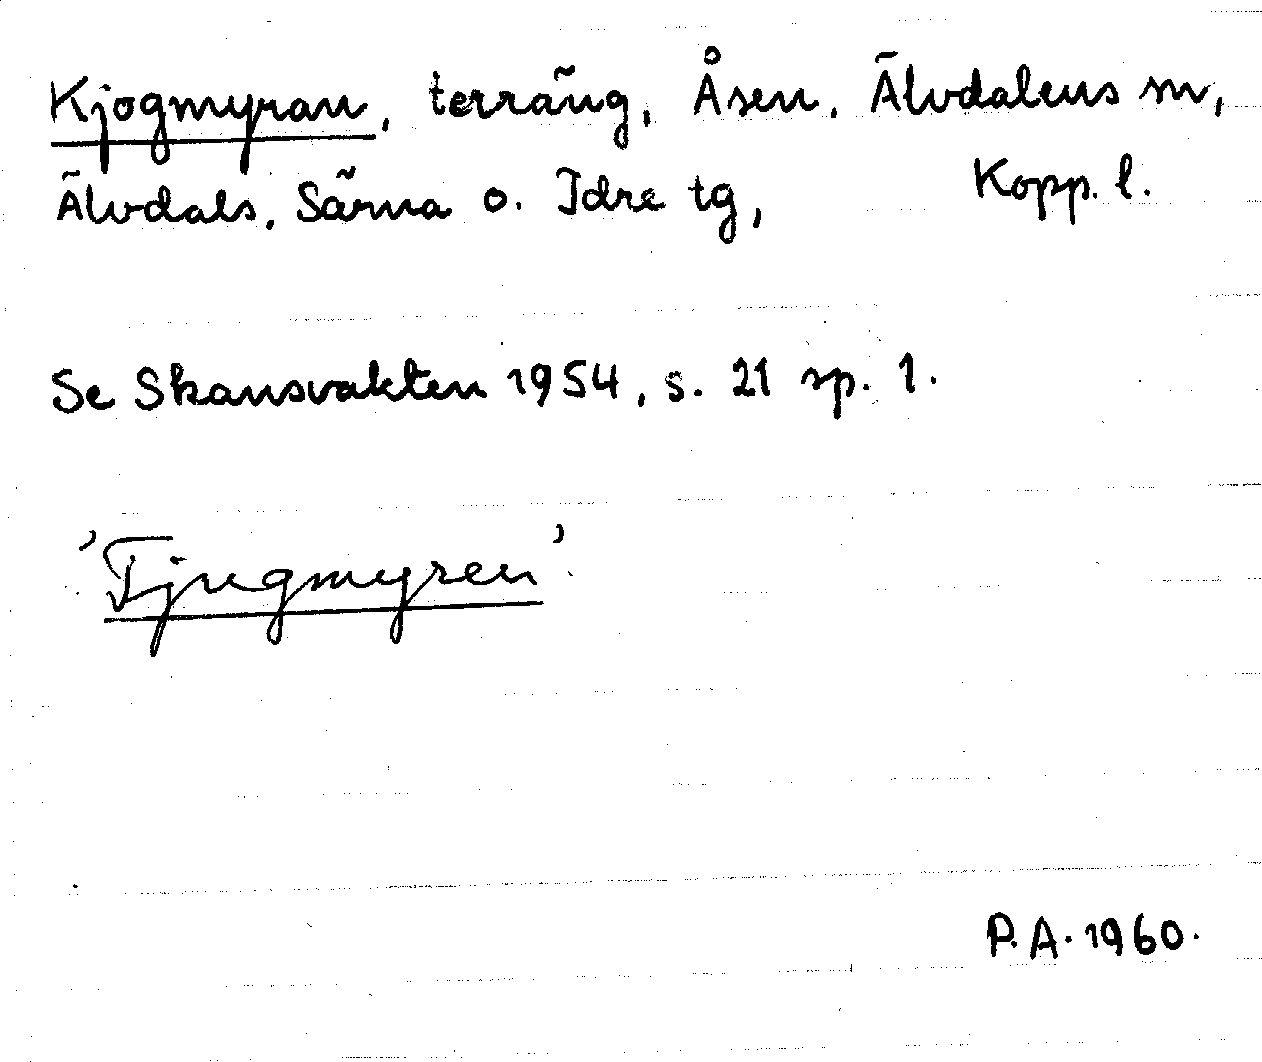 Kjogmyran, terräng, Åsen, Älvdalens sn,
Älvdals, Särna o. Idre tg, Kopp. l.
Se Skansvakten 1954, s. 21 sp. 1.
'Tjugmyren'
P.A. 1960.